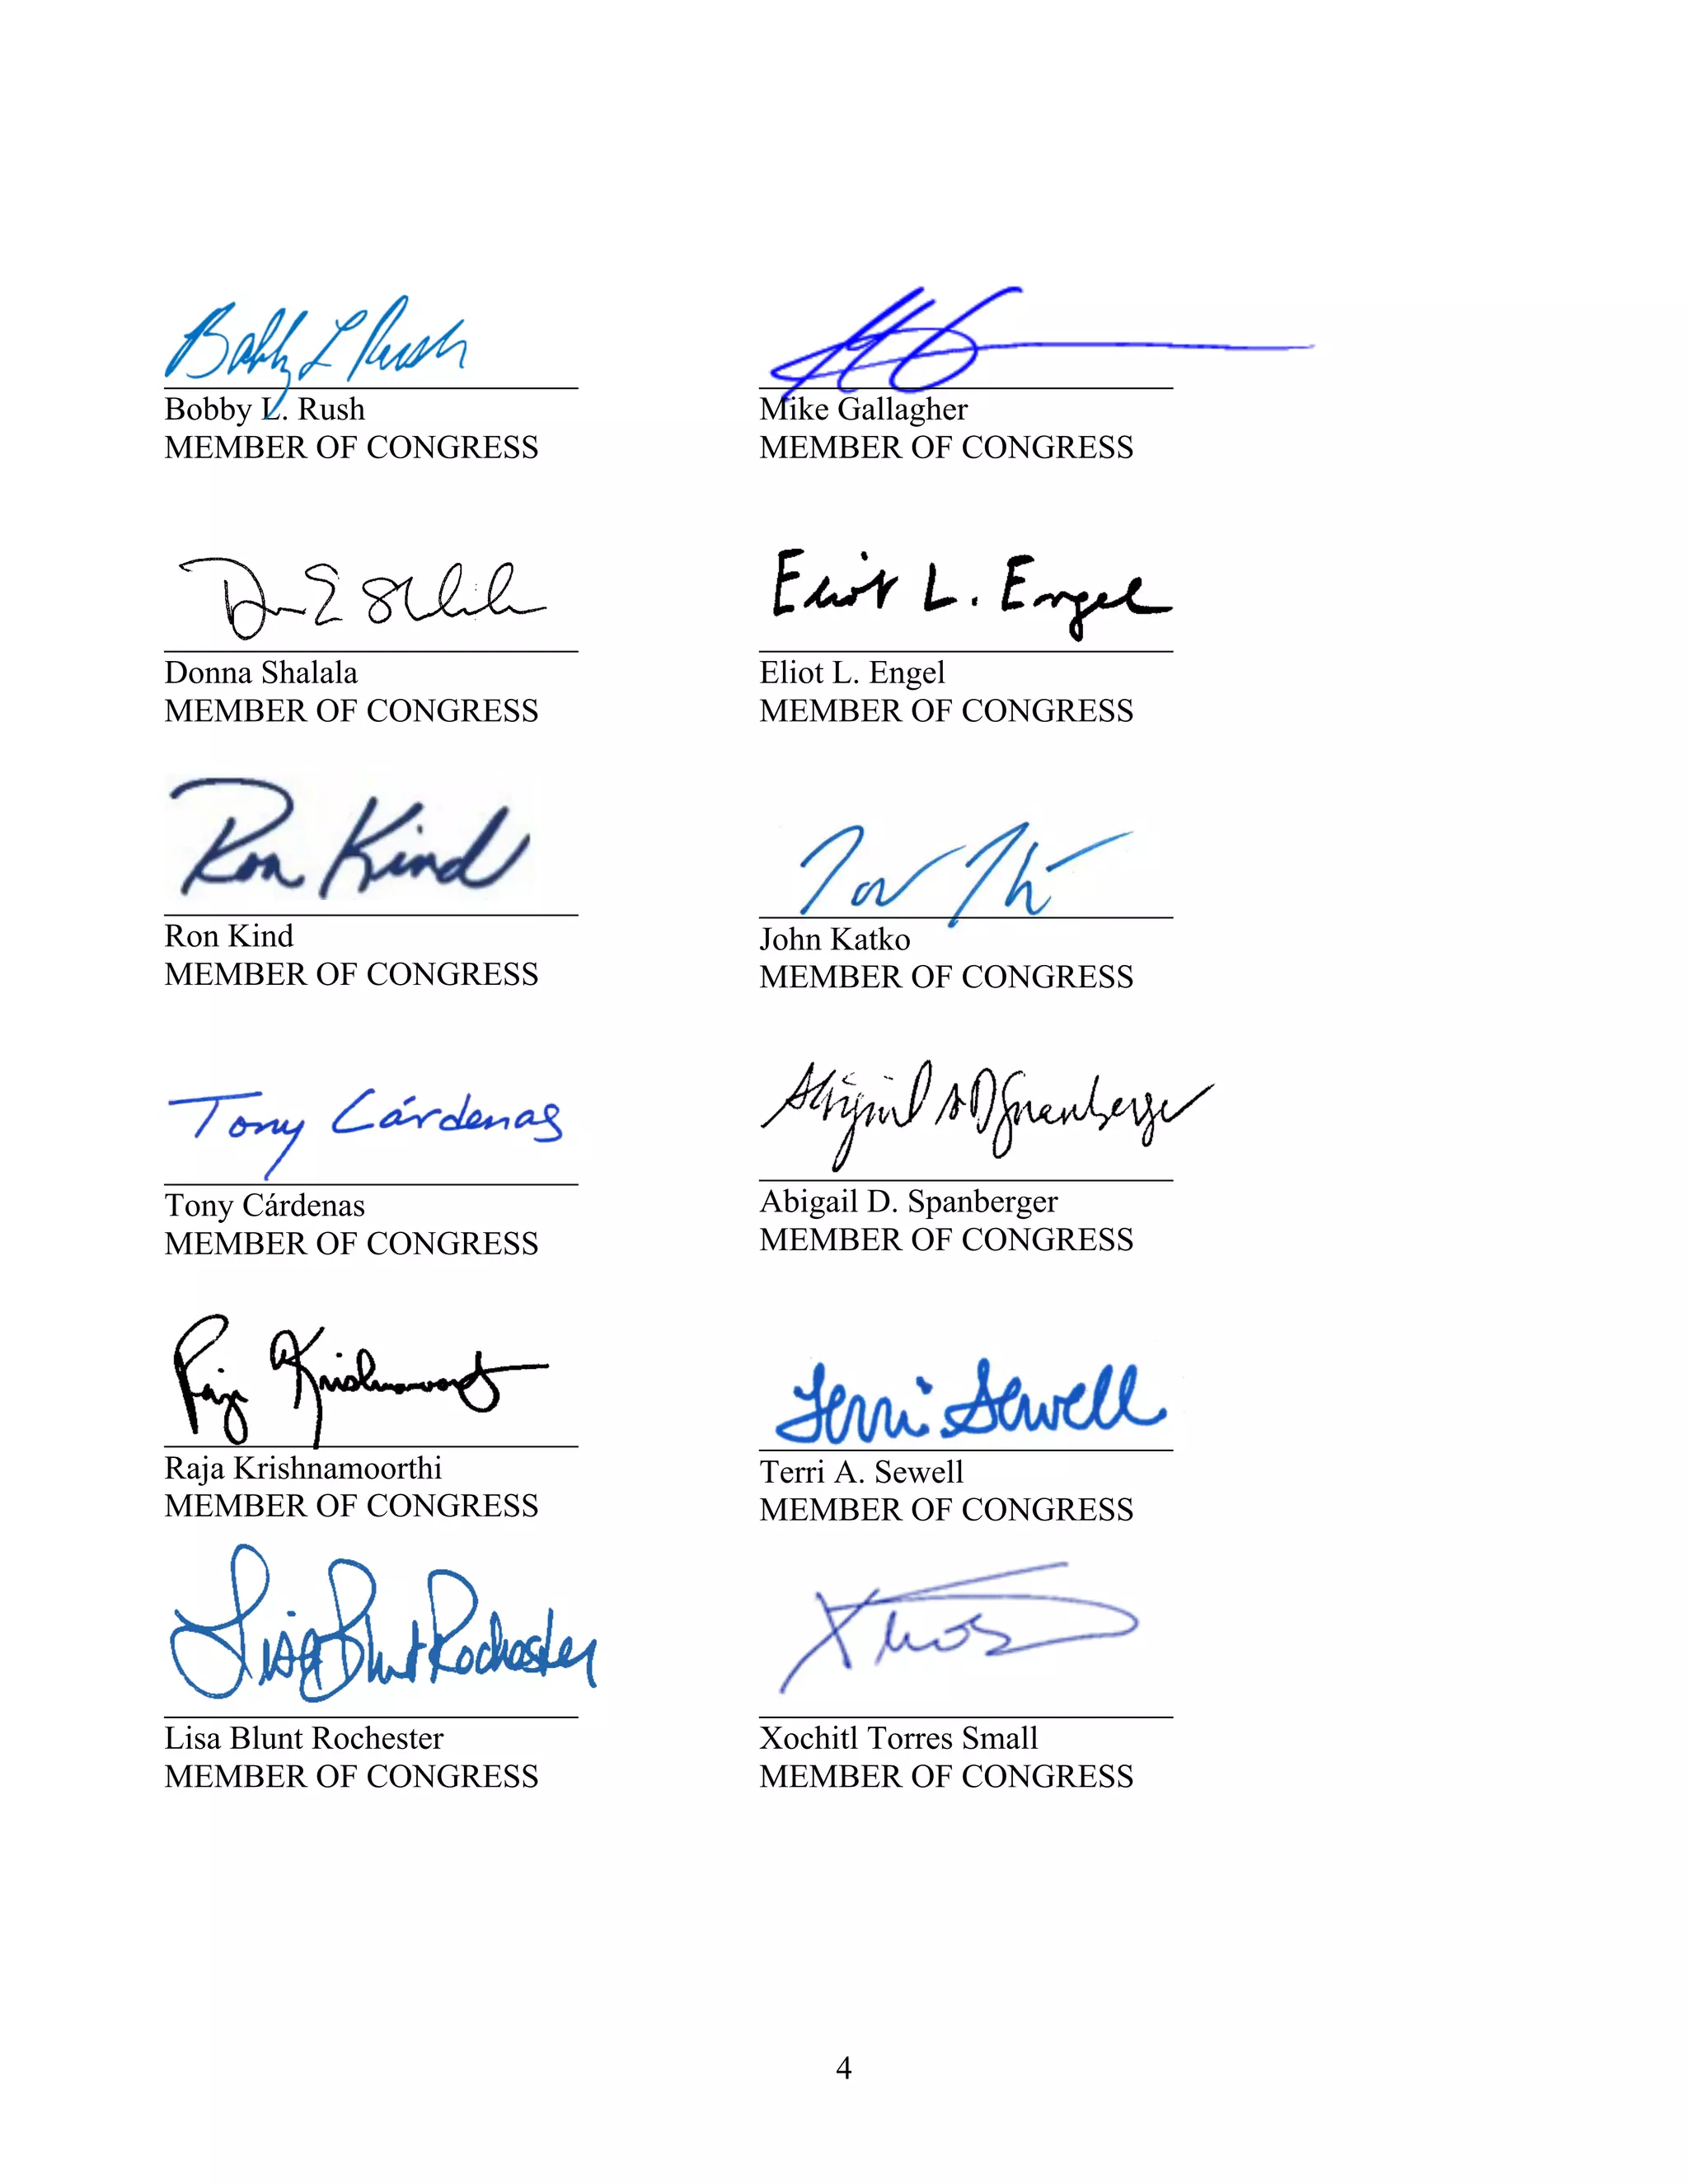 Bobby L Rush
Bobby L. Rush
MEMBER OF CONGRESS
Mike Gallagher
MEMBER OF CONGRESS
Donna Shalala
MEMBER OF CONGRESS
Eliot L. Engel
Eliot L. Engel
MEMBER OF CONGRESS
Ron Kind
Ron Kind
MEMBER OF CONGRESS
John Katko
MEMBER OF CONGRESS
Tony Cárdenas
Tony Cárdenas
MEMBER OF CONGRESS
Abigail D. Spanberger
MEMBER OF CONGRESS
Raja Krishnamoorthi
MEMBER OF CONGRESS
Terri Sewell
Terri A. Sewell
MEMBER OF CONGRESS
Lisa Blunt Rochester
Lisa Blunt Rochester
MEMBER OF CONGRESS
Xochitl Torres Small
MEMBER OF CONGRESS
4